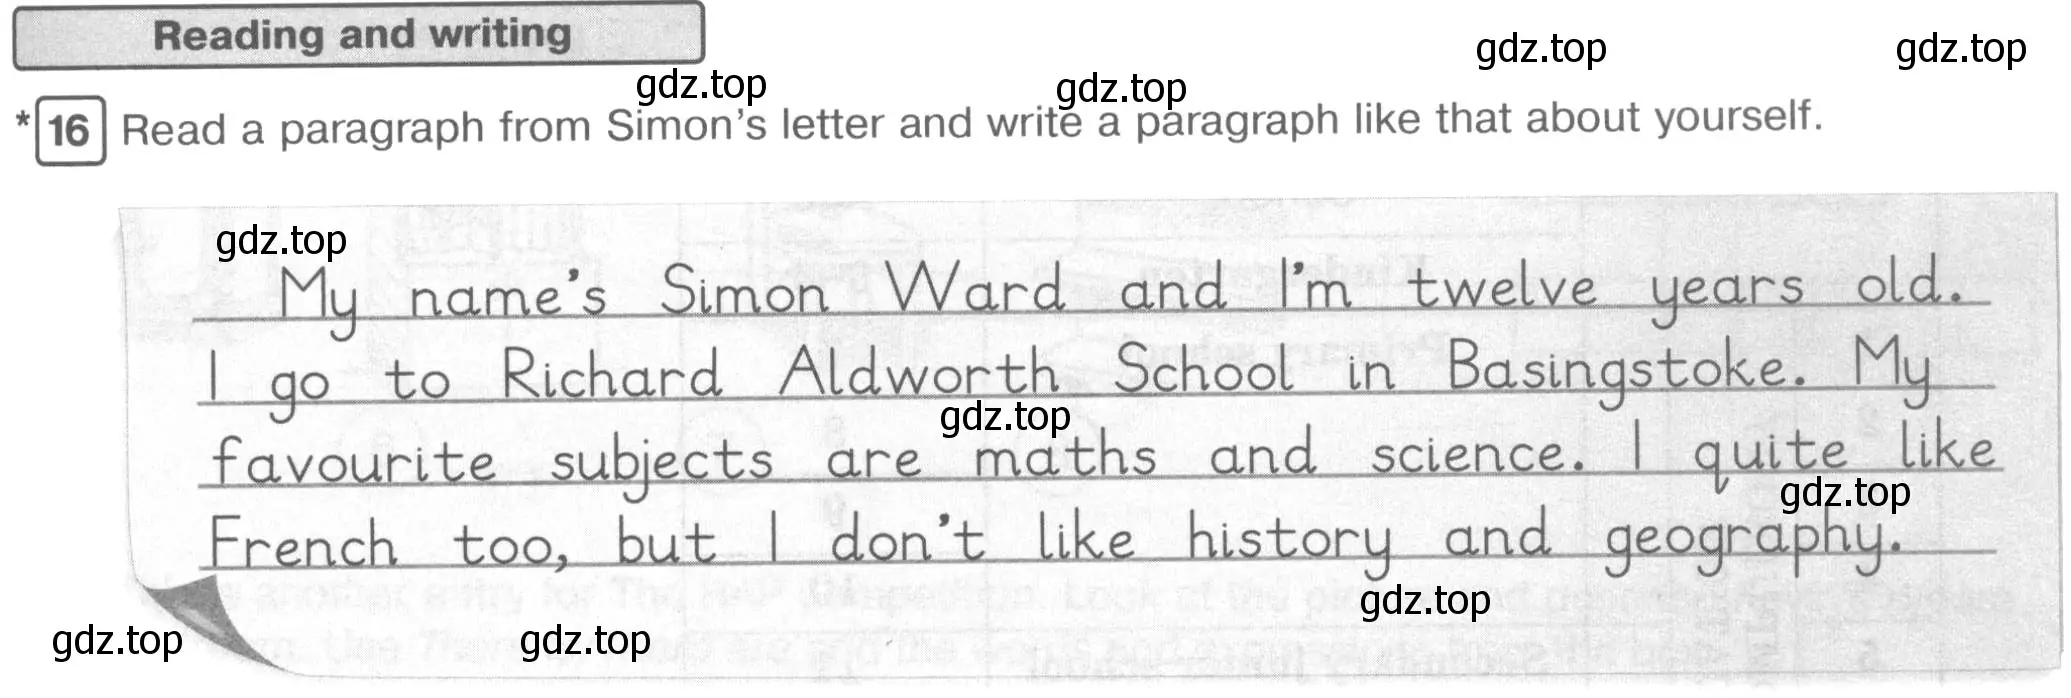 Reading and writing
gdz.top gdz.top
gdz.top gdz.top
* 16 Read a paragraph from Simon's letter and write a paragraph like that about yourself.
gdz.top
My name's Simon Ward and I'm twelve years old.
I go to Richard Aldworth School in Basingstoke. My
gdz.top
favourite subjects are maths and science. I quite like
gdz.top
French too, but I don't like history and geography.
gdz.top
gdz.top gdz.top